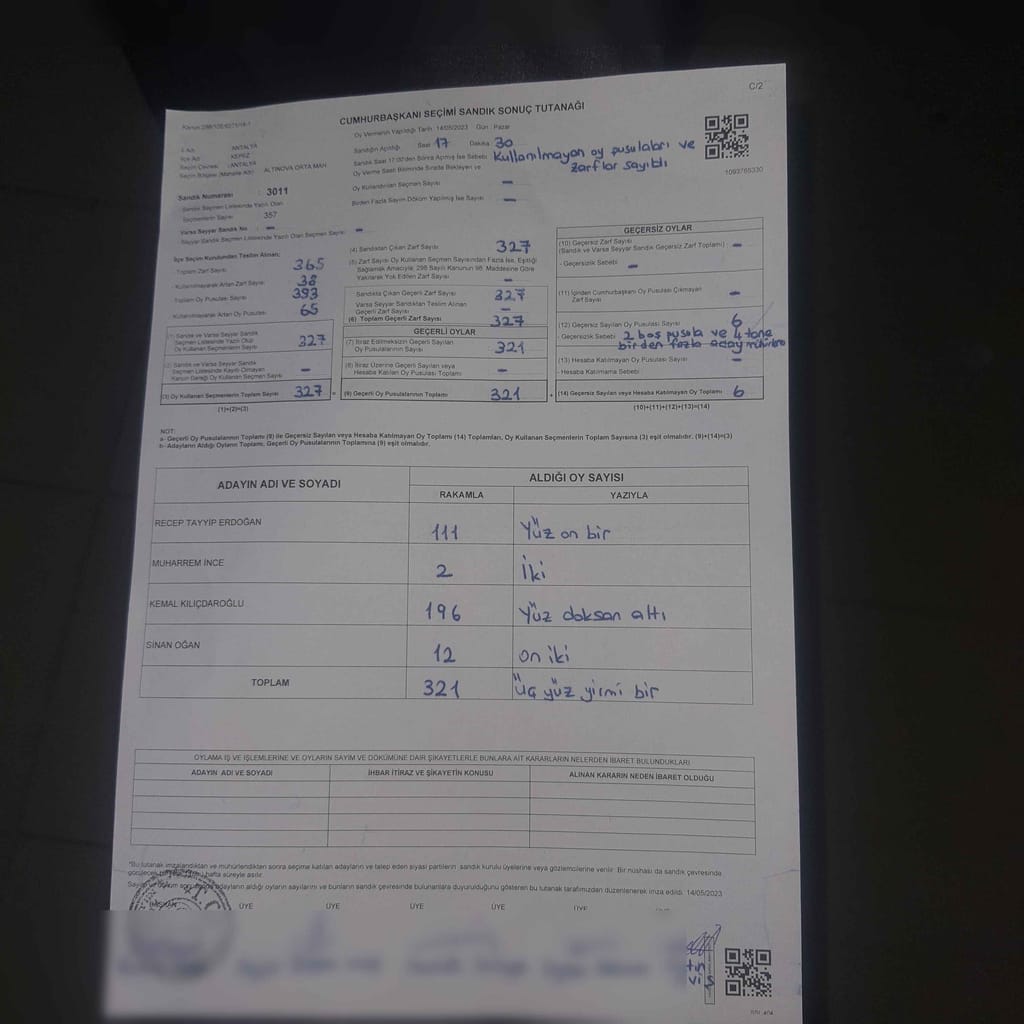 C/2
CUMHURBAŞKANI SEÇİMİ SANDIK SONUÇ TUTANAĞI
Oy Vermenin Yapıldığı Tarih 14/05/2023 Gün : Pazar
İl Adı : ANTALYA
İlçe Adı : KEPEZ
Seçim Çevresi : ANTALYA
Seçim Bölgesi (Mahalle Adı) : ALTINOVA ORTA MAH
Sandık Numarası : 3011
Sandık Seçmen Listesinde Yazılı Olan
Seçmenlerin Sayısı : 357
Varsa Seyyar Sandık No : -
Seyyar Sandık Seçmen Listesinde Yazılı Olan Seçmen Sayısı : -
Sandığın Açıldığı Saat 17 Dakika 30
Sandık Saat 17.00'den Sonra Açılmış İse Sebebi Kullanılmayan oy pusulaları ve
zarflar sayıldı
Oy Verme Saati Bitiminde Sırada Bekleyen ve
Oy Kullandırılan Seçmen Sayısı -
Birden Fazla Sayım Döküm Yapılmış İse Sayısı : -
1093765330
İlçe Seçim Kurulundan Teslim Alınan;
Toplam Zarf Sayısı 365
Kullanılmayarak Artan Zarf Sayısı 38
Toplam Oy Pusulası Sayısı 393
Kullanılmayarak Artan Oy Pusulası 65
(1) Sandık ve Varsa Seyyar Sandık
Seçmen Listesinde Yazılı Olup
Oy Kullanan Seçmenlerin Sayısı 327
(2) Sandık ve Varsa Seyyar Sandık
Seçmen Listesinde Kayıtlı Olmayan
Kanun Gereği Oy Kullanan Seçmen Sayısı -
(3) Oy Kullanan Seçmenlerin Toplam Sayısı 327 =
(1)+(2)=(3)
(4) Sandıktan Çıkan Zarf Sayısı 327
(5) Zarf Sayısı Oy Kullanan Seçmen Sayısından Fazla İse, Eşitliği
Sağlamak Amacıyla; 298 Sayılı Kanunun 98. Maddesine Göre
Yakılarak Yok Edilen Zarf Sayısı -
Sandıkta Çıkan Geçerli Zarf Sayısı 327
Varsa Seyyar Sandıktan Teslim Alınan
Geçerli Zarf Sayısı -
(6) Toplam Geçerli Zarf Sayısı 327
GEÇERLİ OYLAR
(7) İtiraz Edilmeksizin Geçerli Sayılan
Oy Pusulalarının Sayısı 321
(8) İtiraz Üzerine Geçerli Sayılan veya
Hesaba Katılan Oy Pusulası Toplamı -
(9) Geçerli Oy Pusulalarının Toplamı 321 +
GEÇERSİZ OYLAR
(10) Geçersiz Zarf Sayısı
(Sandık ve Varsa Seyyar Sandık Geçersiz Zarf Toplamı) -
- Geçersizlik Sebebi : -
(11) İçinden Cumhurbaşkanı Oy Pusulası Çıkmayan
Zarf Sayısı -
(12) Geçersiz Sayılan Oy Pusulası Sayısı 6
- Geçersizlik Sebebi : 2 boş pusula ve 4 tane
birden fazla aday mühürlü
(13) Hesaba Katılmayan Oy Pusulası Sayısı -
- Hesaba Katılmama Sebebi :
(14) Geçersiz Sayılan veya Hesaba Katılmayan Oy Toplamı 6
(10)+(11)+(12)+(13)=(14)
NOT:
a- Geçerli Oy Pusulalarının Toplamı (9) ile Geçersiz Sayılan veya Hesaba Katılmayan Oy Toplamı (14) Toplamları, Oy Kullanan Seçmenlerin Toplam Sayısına (3) eşit olmalıdır. (9)+(14)=(3)
b- Adayların Aldığı Oyların Toplamı, Geçerli Oy Pusulalarının Toplamına (9) eşit olmalıdır.
ADAYIN ADI VE SOYADI ALDIĞI OY SAYISI
RAKAMLA YAZIYLA
RECEP TAYYİP ERDOĞAN 111 Yüz on bir
MUHARREM İNCE 2 İki
KEMAL KILIÇDAROĞLU 196 Yüz doksan altı
SİNAN OĞAN 12 on iki
TOPLAM 321 Üç yüz yirmi bir
OYLAMA İŞ VE İŞLEMLERİNE VE OYLARIN SAYIM VE DÖKÜMÜNE DAİR ŞİKAYETLERLE BUNLARA AİT KARARLARIN NELERDEN İBARET BULUNDUKLARI
ADAYIN ADI VE SOYADI İHBAR İTİRAZ VE ŞİKAYETİN KONUSU ALINAN KARARIN NEDEN İBARET OLDUĞU
*Bu tutanak imzalandıktan ve mühürlendikten sonra seçime katılan adayların ve talep eden siyasi partilerin sandık kurulu üyelerine veya gözlemcilerine verilir. Bir nüshası da sandık çevresinde
görülecek hafta süreyle asılır.
adayların aldığı oyların sayılarını ve bunların sandık çevresinde bulunanlara duyurulduğunu gösteren bu tutanak tarafımızdan düzenlenerek imza edildi. 14/05/2023
BAŞKAN ÜYE ÜYE ÜYE ÜYE ÜYE